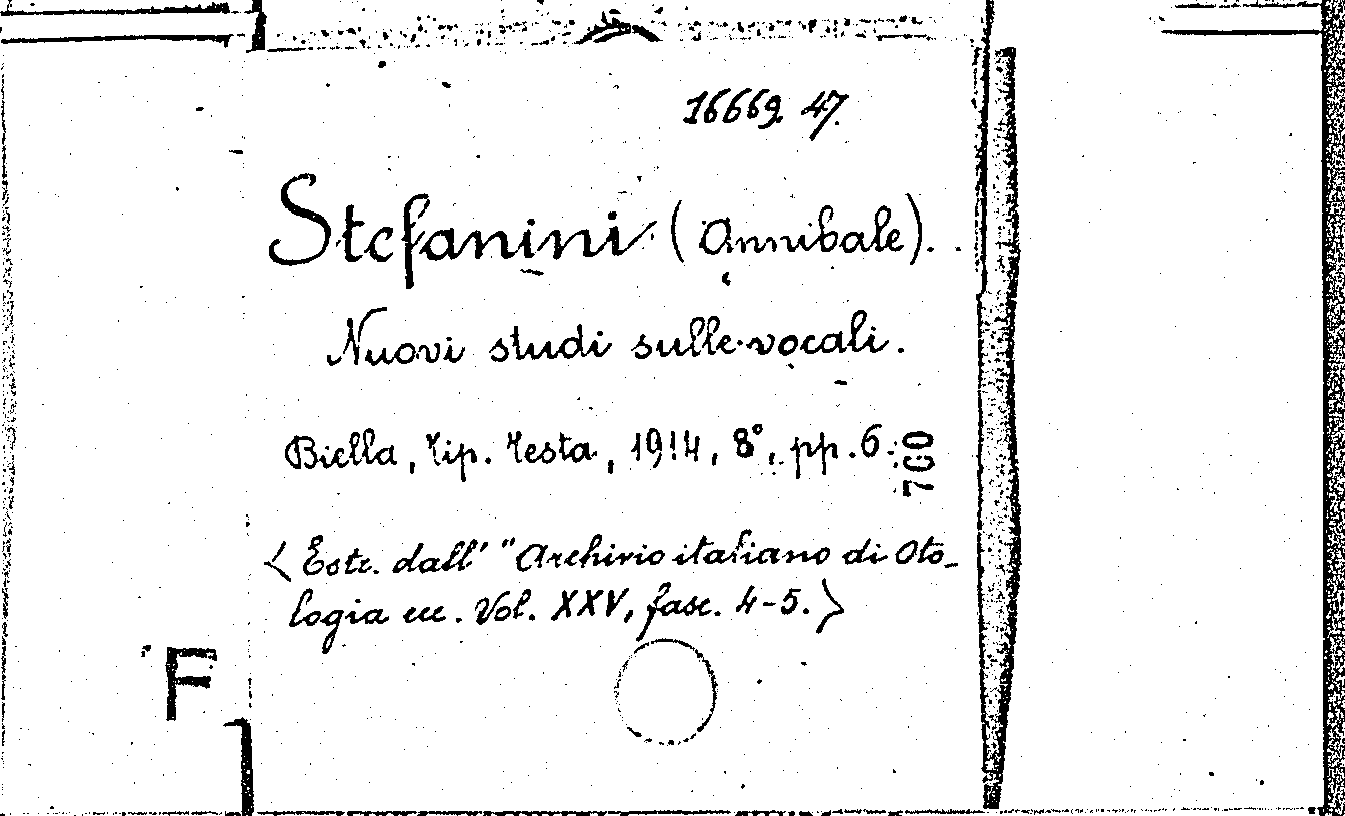 16669. 47.
Stefanini (Annibale).
Nuovi studi sulle vocali.
Biella, Tip. Testa, 1914, 8°, pp. 6.
760
< Estr. dall' "Archivio italiano di Oto-
logia ecc. Vol. XXV, fasc. 4-5. >
F